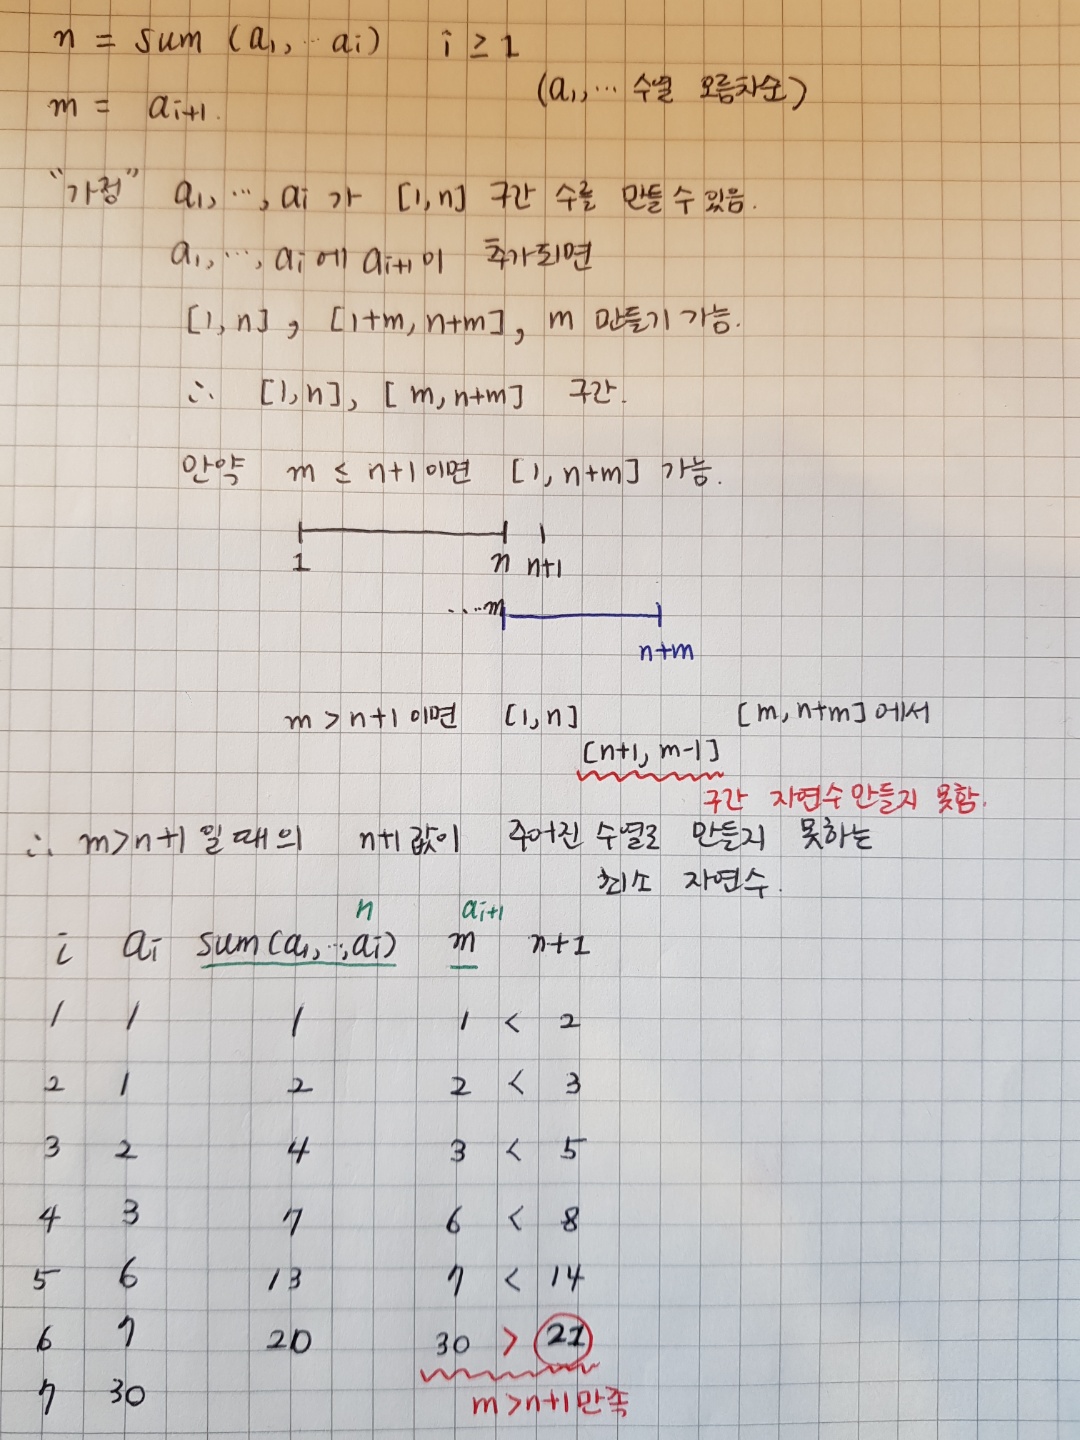 n = sum (a1, … ai)   i ≥ 1
(a1, … 수열 오름차순)
m = ai+1.
"가정" a1, …, ai 가 [1,n] 구간 수를 만들 수 있음.
a1, …, ai 에 ai+1 이 추가되면
[1,n] , [1+m, n+m], m 만들기 가능.
∴ [1,n], [m, n+m] 구간.
만약 m ≤ n+1 이면 [1, n+m] 가능.
1 n n+1
…m
n+m
m > n+1 이면 [1,n] [m, n+m] 에서
[n+1, m-1]
구간 자연수 만들지 못함.
∴ m>n+1 일 때의 n+1 값이 주어진 수열로 만들지 못하는
최소 자연수.
n ai+1
i ai sum(a1, …, ai) m n+1
1 1 1 1 < 2
2 1 2 2 < 3
3 2 4 3 < 5
4 3 7 6 < 8
5 6 13 7 < 14
6 7 20 30 > 21
7 30
m>n+1 만족